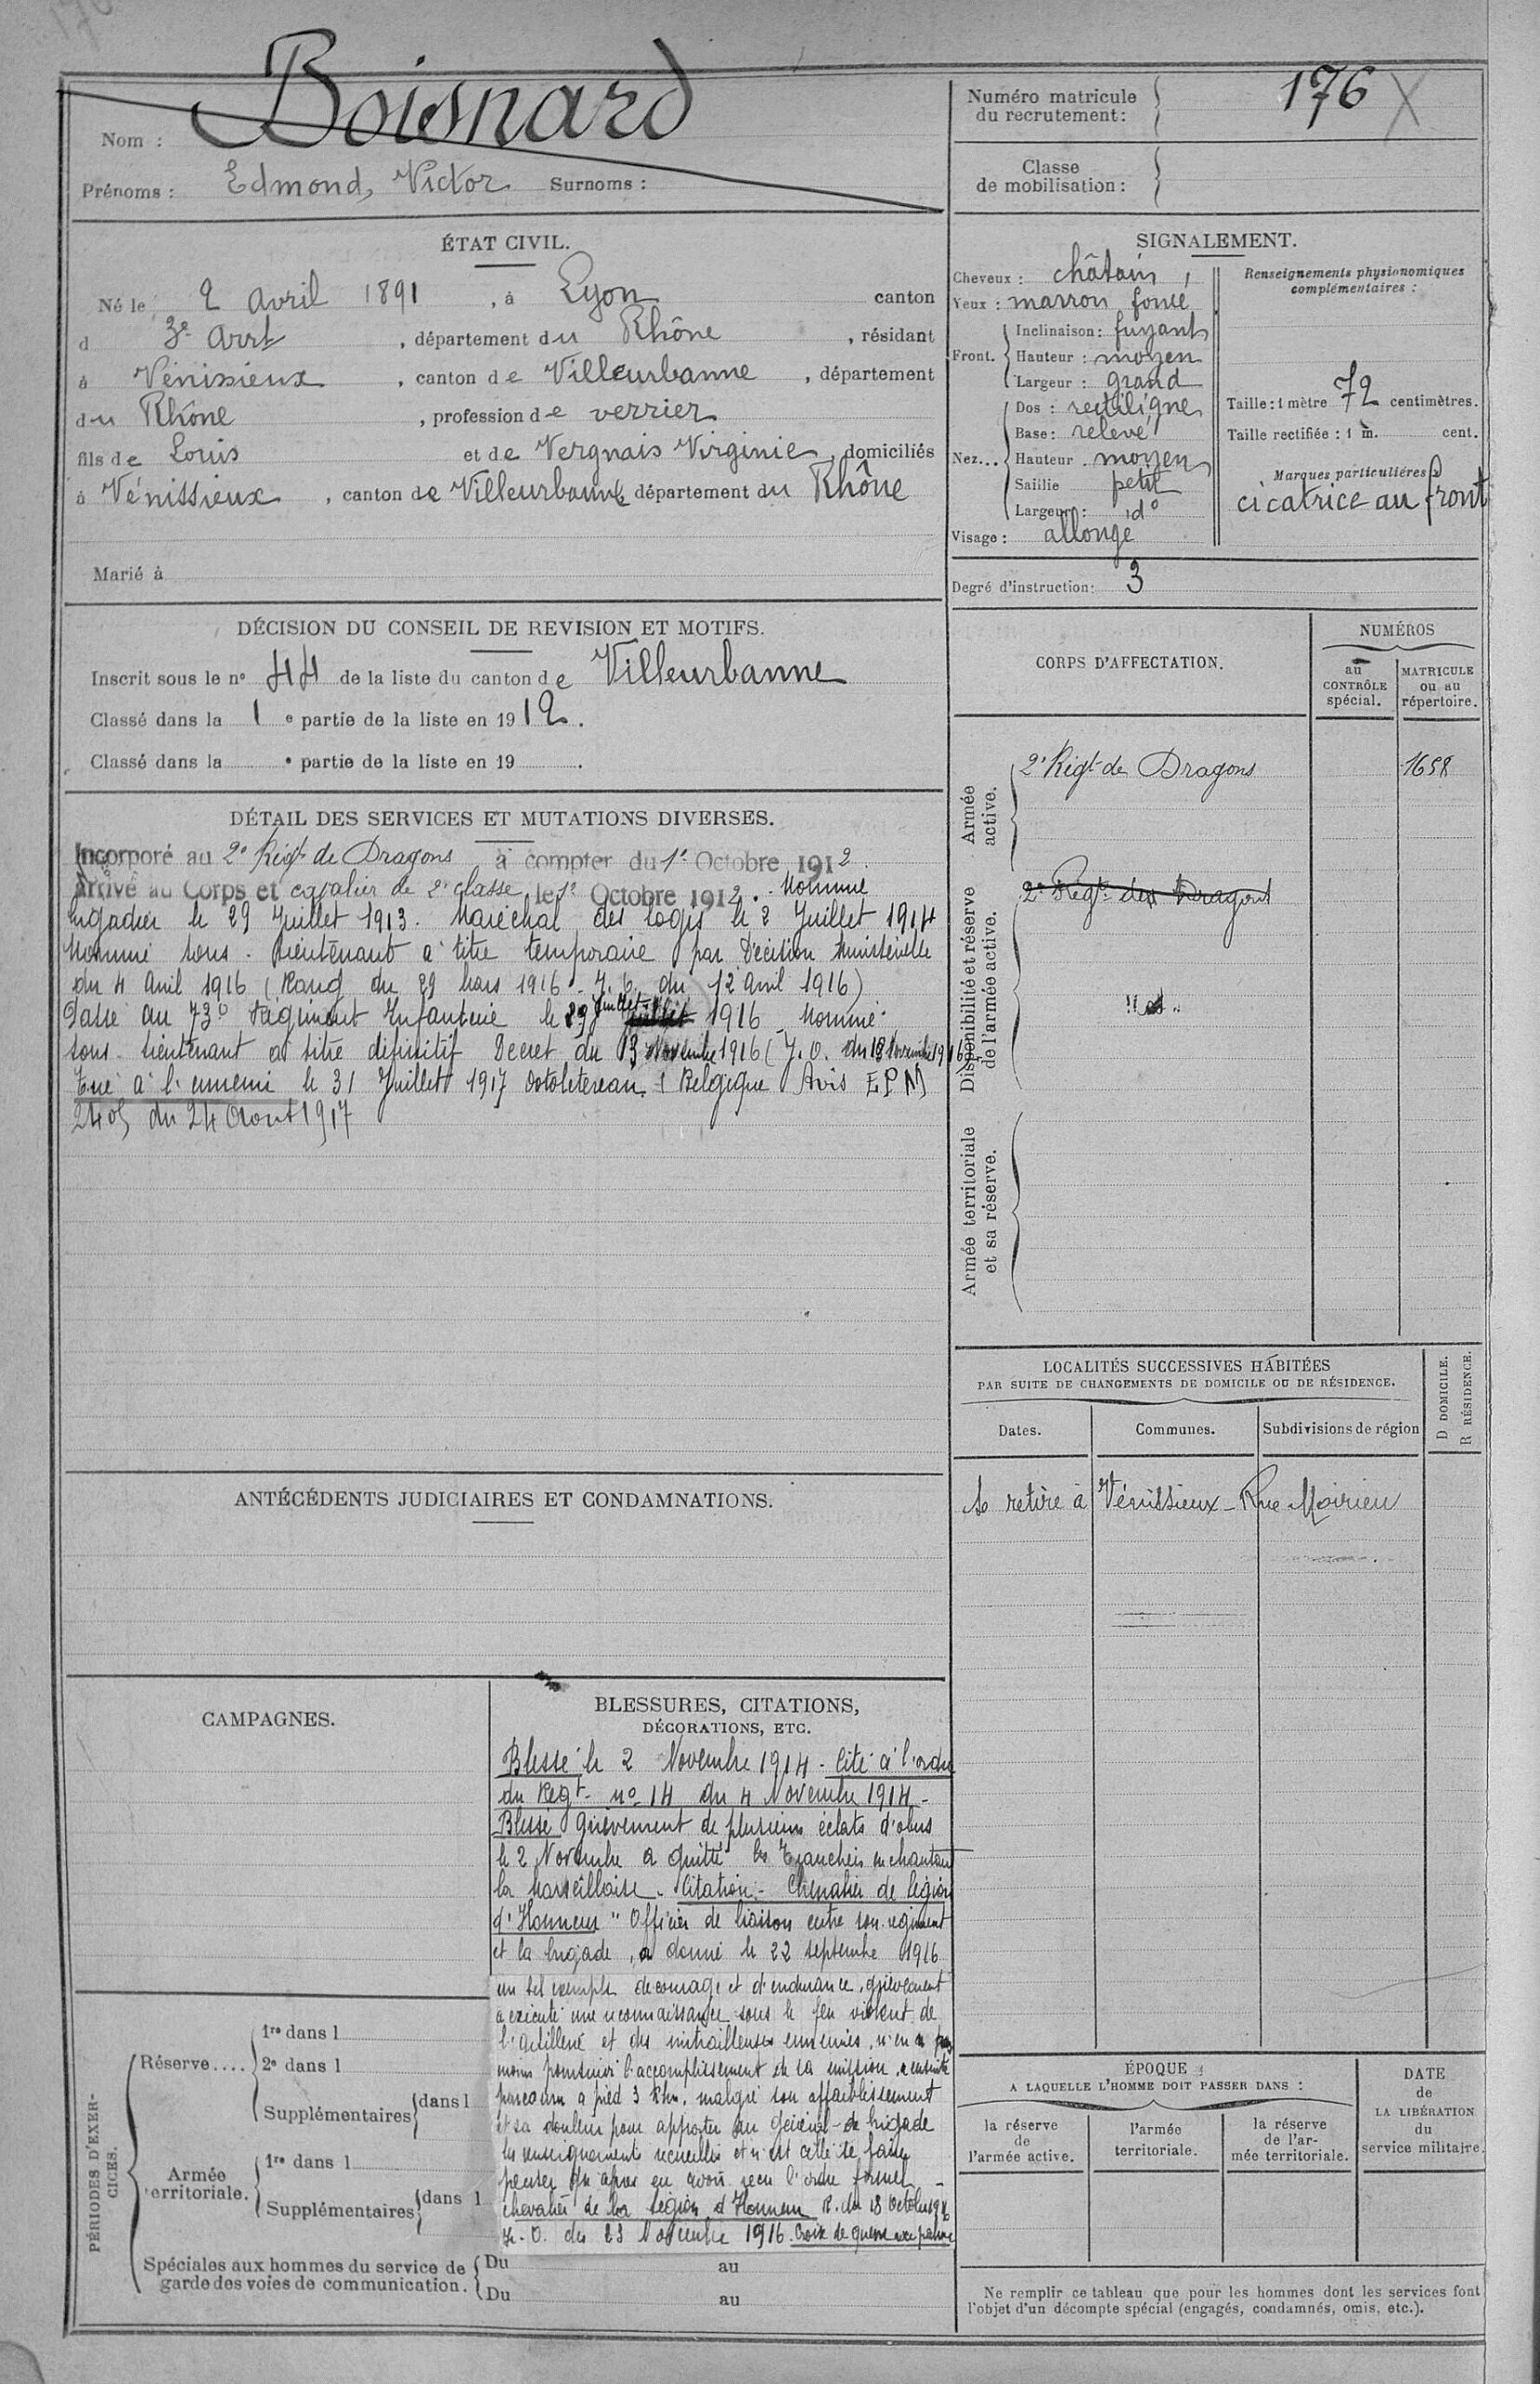 Nom : Boisnard
Prénoms : Edmond, Victor Surnoms :
Numéro matricule du recrutement : 176
Classe de mobilisation :
ÉTAT CIVIL.
Né le 2 avril 1891, à Lyon canton
d 3e Arrt, département du Rhône, résidant
à Vénissieux, canton de Villeurbanne, département
du Rhône, profession de verrier
fils de Louis et de Vergnais Virginie, domiciliés
à Vénissieux, canton de Villeurbanne département du Rhône
Marié à
SIGNALEMENT.
Cheveux : châtain
Yeux : marron foncé
Front. Inclinaison : fuyant
Hauteur : moyen
Largeur : grand
Nez... Dos : rectiligne
Base : relevé
Hauteur moyen
Saillie petit
Largeur : do
Visage : allongé
Renseignements physionomiques complémentaires :
Taille : 1 mètre 72 centimètres.
Taille rectifiée : 1 m. cent.
Marques particulières
cicatrice au front
Degré d'instruction : 3
DÉCISION DU CONSEIL DE REVISION ET MOTIFS.
Inscrit sous le no 44 de la liste du canton de Villeurbanne
Classé dans la 1e partie de la liste en 1912.
Classé dans la e partie de la liste en 19 .
DÉTAIL DES SERVICES ET MUTATIONS DIVERSES.
Incorporé au 2e Régt de Dragons à compter du 1er Octobre 1912.
Arrivé au Corps et cavalier de 2e classe le 1er Octobre 1912. Nommé
brigadier le 29 Juillet 1913. Maréchal des logis le 2 Juillet 1914
Nommé sous-lieutenant à titre temporaire par Décision Ministérielle
du 4 Avril 1916 (Rang du 29 Mars 1916 - J.O. du 12 Avril 1916)
Passé au 73e Régiment Infanterie le 29 Juillet 1916 Nommé
sous-lieutenant à titre définitif Décret du 13 Novembre 1916 (J.O. du 18 Novembre 1916)
Tué à l'ennemi le 31 Juillet 1917 Belgique Avis E P M
du 24 Aout 1917
CORPS D'AFFECTATION.
NUMÉROS
au CONTRÔLE spécial.
MATRICULE ou au répertoire.
Armée active.
2e Régt de Dragons 1658
Disponibilité et réserve de l'armée active.
2e Régt de Dragons
Armée territoriale et sa réserve.
LOCALITÉS SUCCESSIVES HABITÉES
PAR SUITE DE CHANGEMENTS DE DOMICILE OU DE RÉSIDENCE.
D DOMICILE.
R RÉSIDENCE.
Dates. Communes. Subdivisions de région
Se retire à Vénissieux - Rue Moirieu
ANTÉCÉDENTS JUDICIAIRES ET CONDAMNATIONS.
CAMPAGNES.
BLESSURES, CITATIONS,
DÉCORATIONS, ETC.
Blessé le 2 Novembre 1914 - Cité à l'ordre
du Régt - no 14 du 4 Novembre 1914 -
Blessé grièvement de plusieurs éclats d'obus
le 2 Novembre a quitté les tranchées en chantant
la Marseillaise - Citation - Chevalier de légion
d'Honneur "Officier de liaison entre son régiment
et la brigade, a donné le 22 septembre 1916
un bel exemple de courage et d'endurance, grièvement
a exécuté une reconnaissance sous le feu violent de
l'artillerie et des mitrailleuses ennemies, n'en a pas
moins poursuivi l'accomplissement de sa mission, a ensuite
parcouru à pied 3 Km. malgré son affaiblissement
et sa douleur pour apporter au général de brigade
les renseignements recueillis et n'est allé se faire
panser qu'après en avoir reçu l'ordre formel -
chevalier de la Légion d'Honneur du 18 Octobre 1916
J.O. du 23 Novembre 1916. Croix de guerre avec palme
PÉRIODES D'EXERCICES.
Réserve.... 1re dans l
2e dans l
Supplémentaires dans l
Armée territoriale. 1re dans l
Supplémentaires dans l
Spéciales aux hommes du service de garde des voies de communication.
Du au
Du au
ÉPOQUE
A LAQUELLE L'HOMME DOIT PASSER DANS :
la réserve de l'armée active.
l'armée territoriale.
la réserve de l'armée territoriale.
DATE de LA LIBÉRATION du service militaire.
Ne remplir ce tableau que pour les hommes dont les services font
l'objet d'un décompte spécial (engagés, condamnés, omis, etc.).